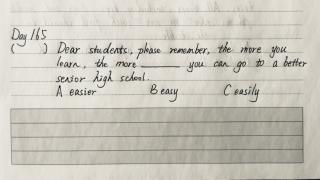 Day 165
( ) Dear students, please remember, the more you
learn, the more ______ you can go to a better
senior high school.
A easier B easy C easily